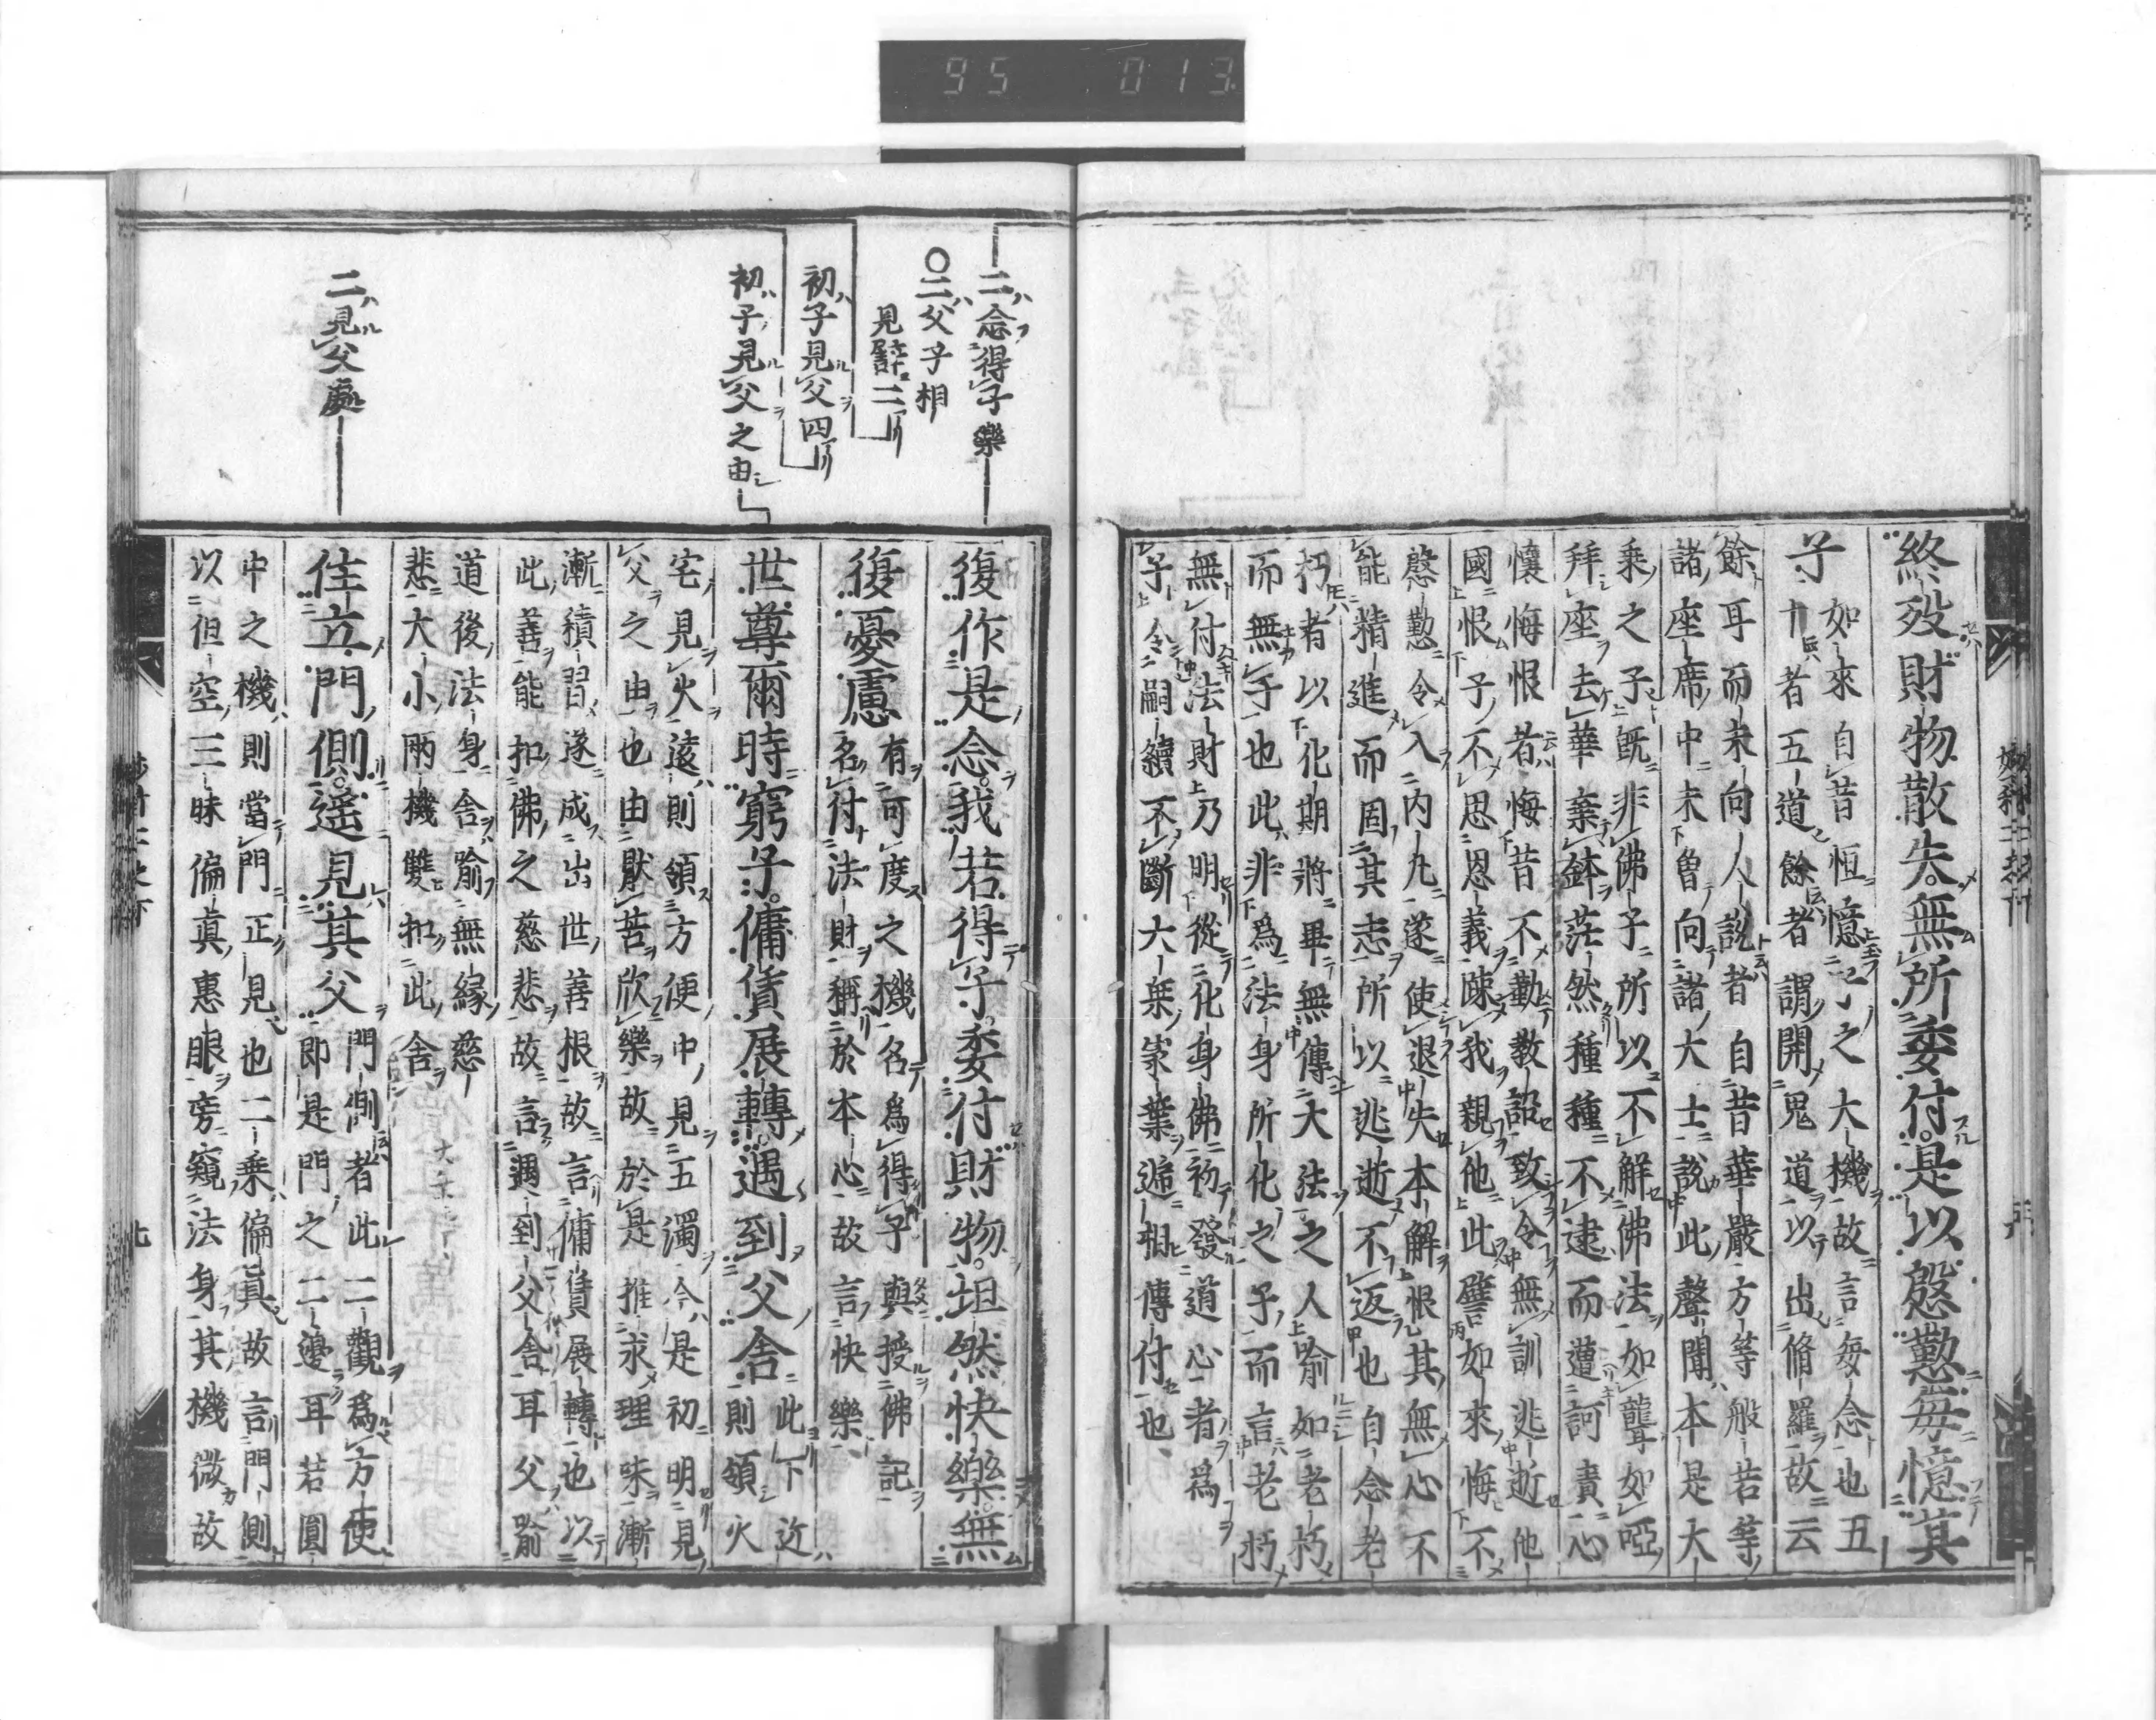 95 013
終歿財物散失無所委付是以慇懃每憶其
子
如來自昔恒憶之大機故言每念也五
十者五道餘者謂開鬼道以出脩羅故云
餘耳而未向人說者自昔華嚴方等般若等
諸座席中未曾向諸大士說此聲聞本是大
乘之子既非佛子所以不解佛法如聾如啞
拜座去華棄鉢茫然種種不逮而遭訶責心
懷悔恨者悔昔不勤教詔致令無訓逃逝他
國恨子不思恩義踈我親他此譬如來悔不
慇懃令入內凡遂使退失本解恨其無心不
能精進而固其志所以逃逝不返也自念老
朽者以化期將畢無傳大法之人喻如老朽
而無子也此非為法身所化之子而言老朽
無付法財乃明從化身佛初發道心者為
子令嗣續不斷大乗家業遞相傳付也
二念得子樂
復作是念我若得子委付財物坦然快樂無
復憂慮
有可度之機名為得子與授佛記
名付法財稱於本心故言快樂
○二父子相
見譬二
初子見父四
初子見父之由
世尊爾時窮子傭賃展轉遇到父舍
此下近
則領火
宅見火遠則領方便中見五濁今是初明見
父之由也由猒苦欣樂故於是推求理味漸
漸積習遂成出世善根故言傭賃展轉也以
此善能扣佛之慈悲故言遇到父舍耳父喻
道後法身舍喻無緣慈
悲大小兩機雙扣此舍
二見父處
住立門側遥見其父
門側者此二觀為方便
即是門之二邊耳若圓
中之機則當門正見也二乗偏真故言門側
以但空三昧偏真惠眼旁窺法身其機微故